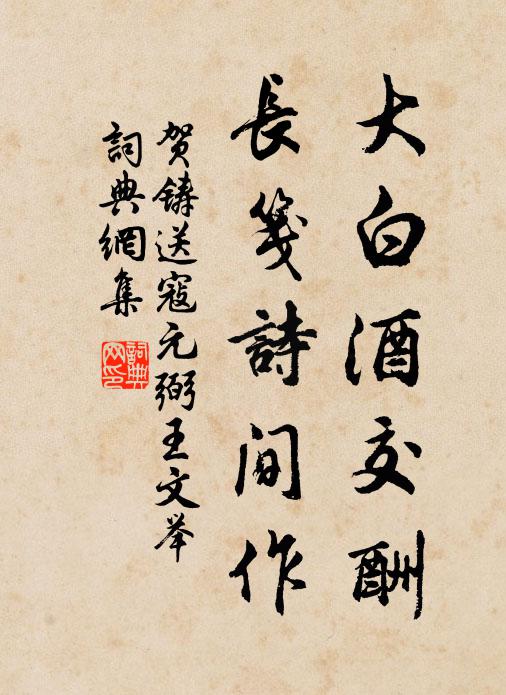 大白酒交酬
長箋詩間作
贺鑄送寇元弼王文举
詞典網集
詞典网印